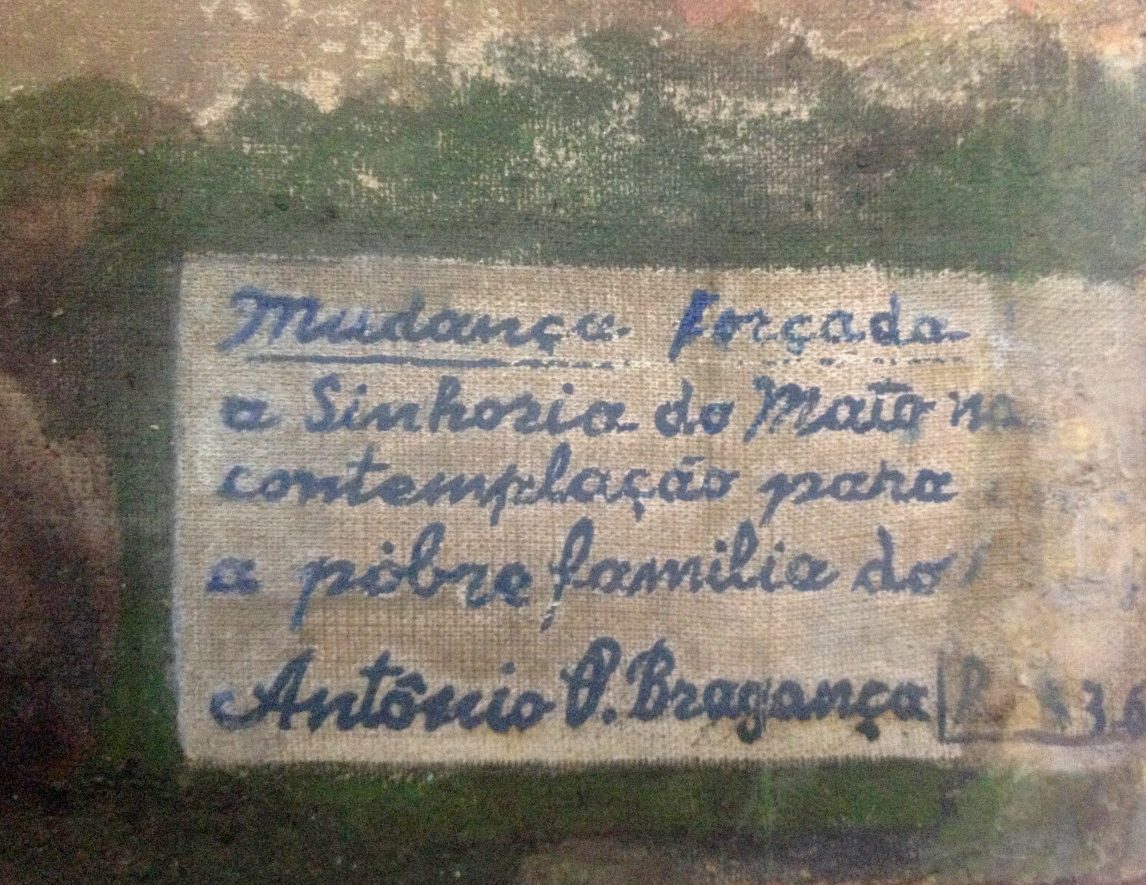 Mudança forçada
a Sinhoria do Mato na
contemplação para
a póbre familia do
Antônio P. Bragança